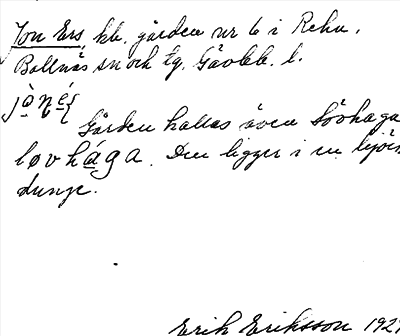 Jon Ers, hb. gården nr 6 i Rehn,
Bollnäs sn och tg. Gävleb. l.
Gården kallas även Lövhaga
løvhága. Den ligger i en björk
dunge.
Erik Eriksson 192